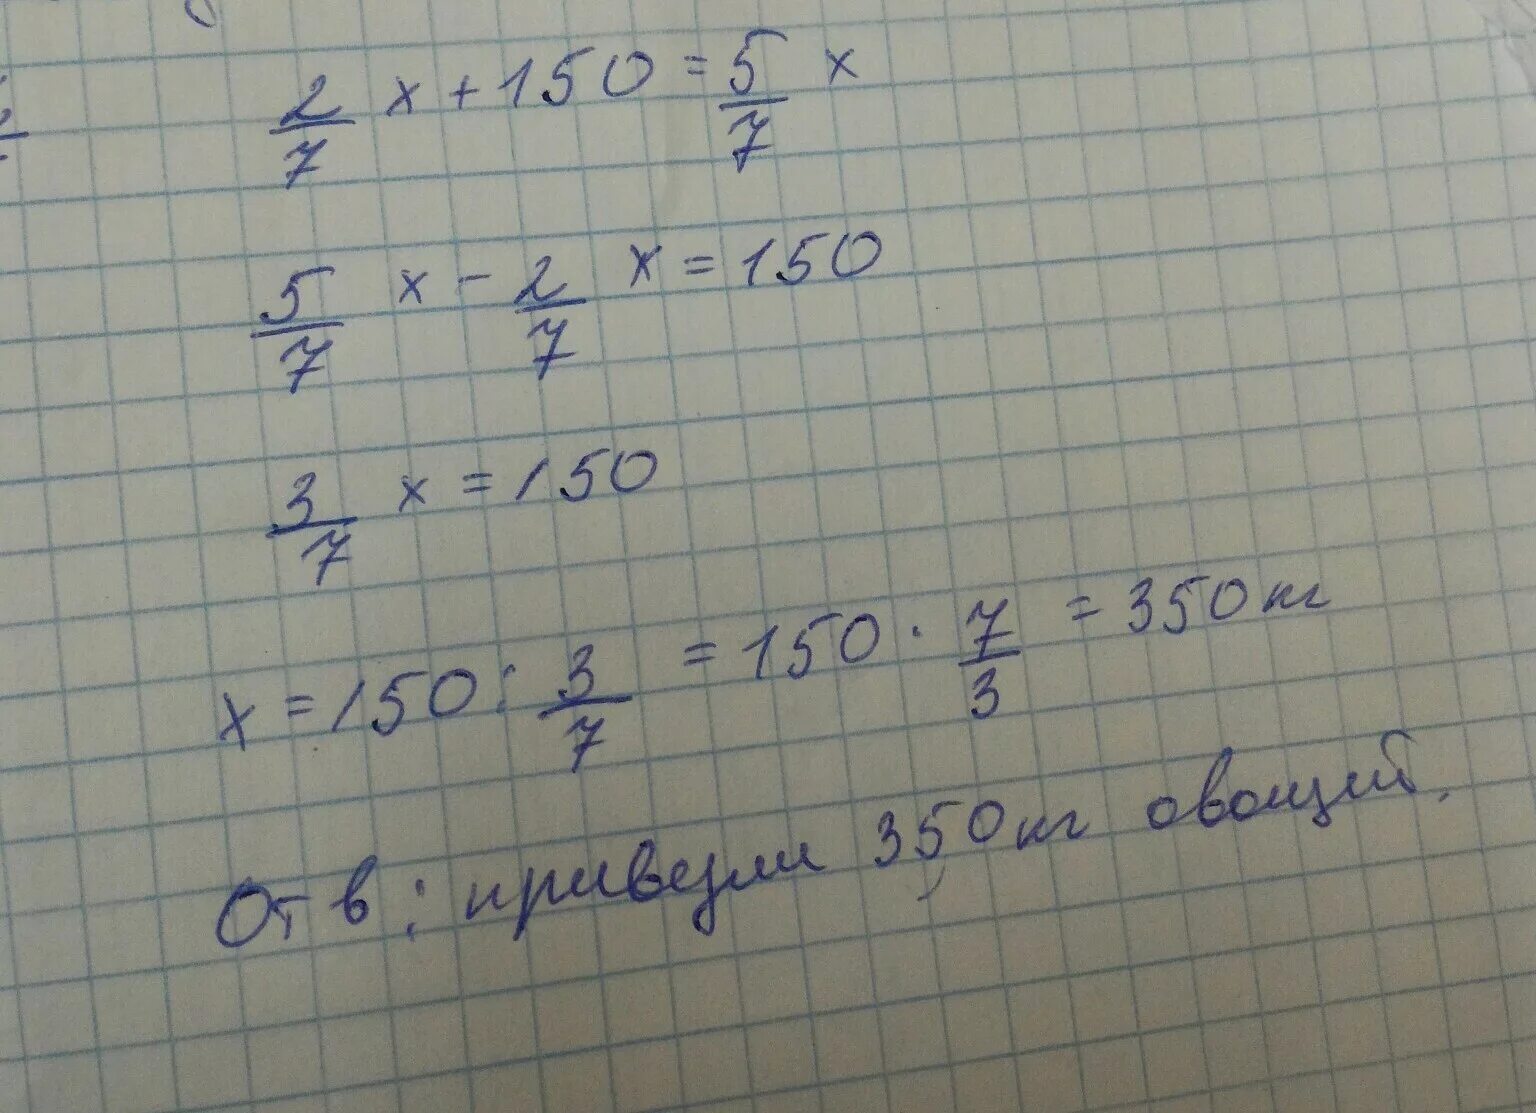 2/7 x + 150 = 5/7 x
5/7 x - 2/7 x = 150
3/7 x = 150
x = 150 : 3/7 = 150 · 7/3 = 350 кг
Отв: привезли 350 кг овощей.